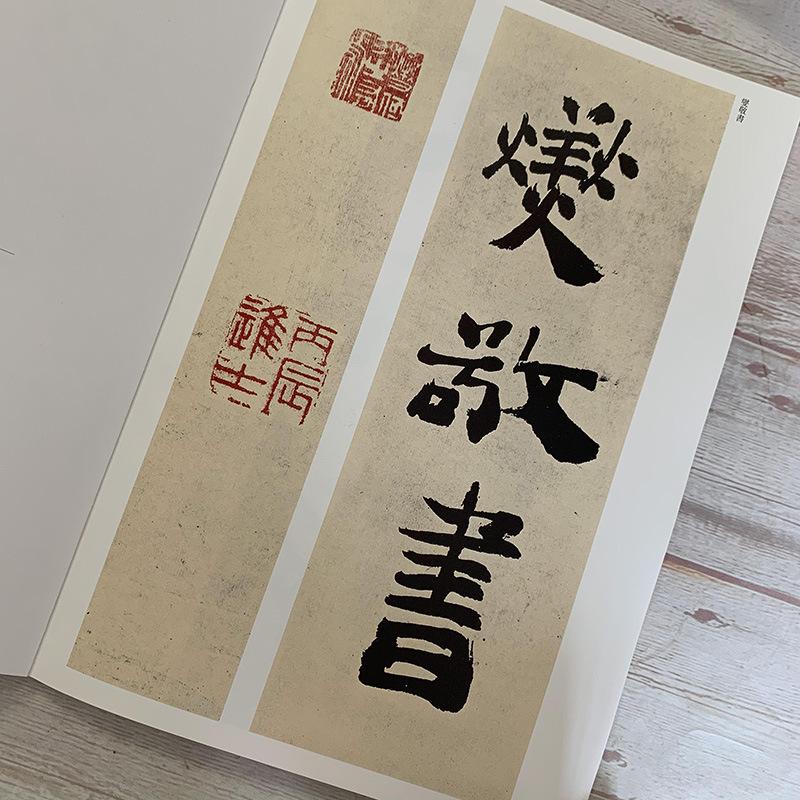 燮敬書
燮敬書
丙辰進士